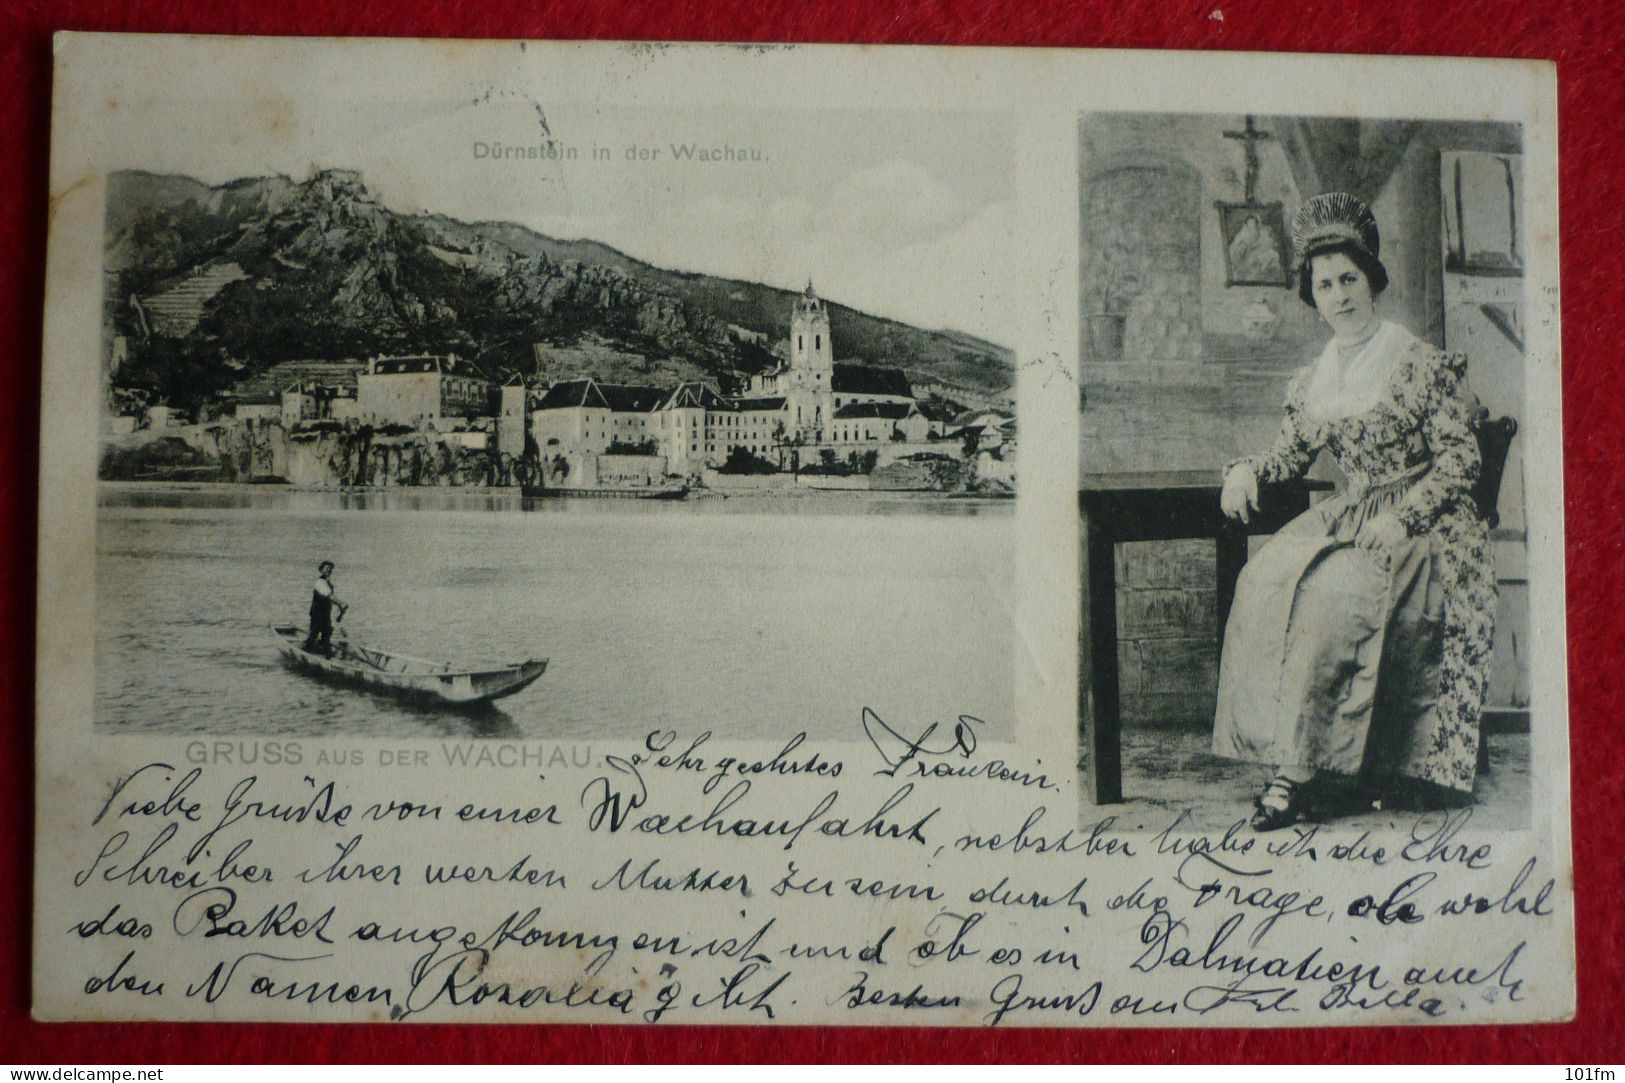 Dürnstein in der Wachau.
GRUSS AUS DER WACHAU.
Sehr geehrtes Fräulein.
Viele Grüße von einer Wachaufahrt, nebstbei habe ich die Ehre
Schreiber ihrer werten Mutter zu sein durch die Frage, ob wohl
das Paket angekommen ist und ob es in Dalmatien auch
den Namen „Rosalia" gibt. Besten Gruß an Frl. Bella.
101fm